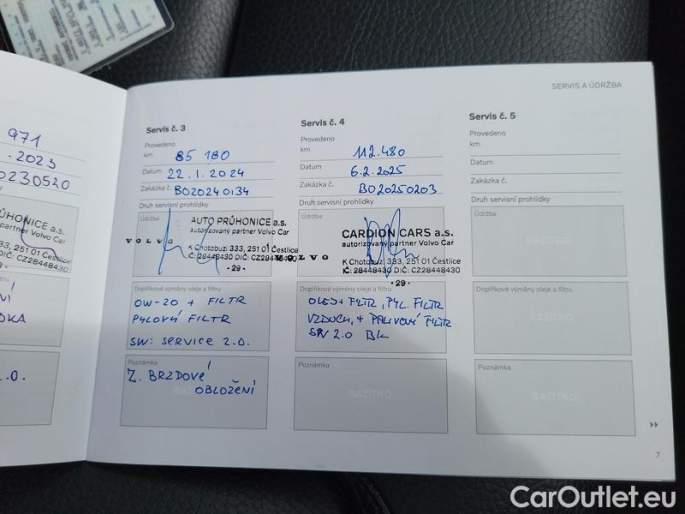 SERVIS A ÚDRŽBA
971
.2023
0230520
ŮHONICE a.s.
partner Volvo Car
333, 251 01 Čestlice
Servis č. 3
Provedeno
km 85 180
Datum 22.1.2024
Zakázka č. BO20240134
Druh servisní prohlídky
Údržba
AUTO PRŮHONICE a.s.
autorizovaný partner Volvo Car
VOLVO
K Chotobuzi 333, 251 01 Čestlice
IČ: 28448430 DIČ: CZ28448430
- 29 -
Doplňkové výměny oleje a filtru
0W-20 + FILTR
PYLOVÝ FILTR
SW: SERVICE 2.0.
Poznámka
Z. BRZDOVÉ
OBLOŽENÍ
Servis č. 4
Provedeno
km 112.480
Datum 6.2.2025
Zakázka č. BO20250203
Druh servisní prohlídky
Údržba
CARDION CARS a.s.
autorizovaný partner Volvo Car
VOLVO
K Chotobuzi 333, 251 01 Čestlice
IČ: 28448430 DIČ: CZ28448430
- 29 -
Doplňkové výměny oleje a filtru
OLEJ + FILTR, PYL. FILTR
VZDUCH, + PALIVOVÝ FILTR
SW 2.0 BK
Poznámka
Servis č. 5
Provedeno
km
Datum
Zakázka č.
Druh servisní prohlídky
Údržba
RAZÍTKO
Doplňkové výměny oleje a filtru
RAZÍTKO
Poznámka
RAZÍTKO
7
CarOutlet.eu